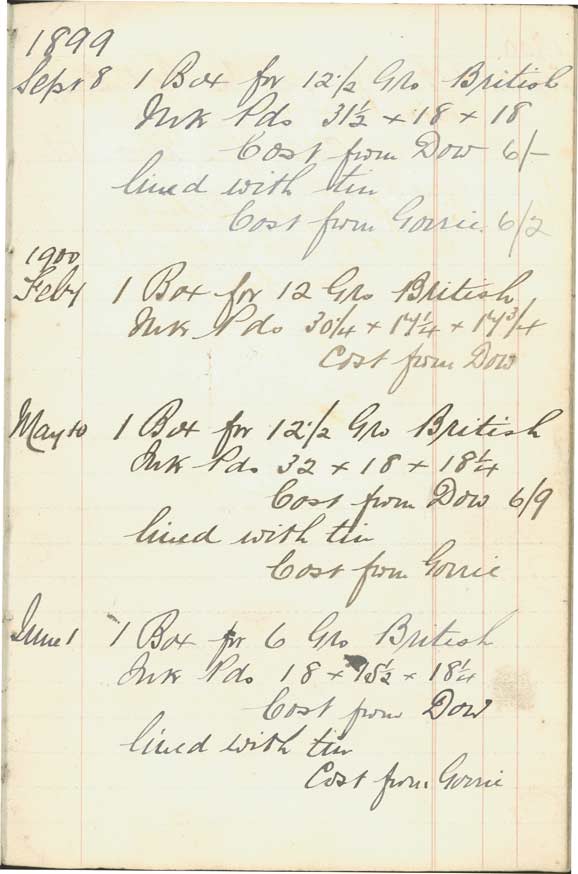 1899
Sept 8 1 Box for 12 1/2 Gro British
Ink Pds 31 1/2 x 18 x 18
Cost from Dow 6/-
lined with tin
Cost from Gorrie 6/2
1900
Feby 1 Box for 12 Gro British
Ink Pds 30 1/4 x 17 1/4 x 17 3/4
Cost from Dow
May 10 1 Box for 12 1/2 Gro British
Ink Pds 32 x 18 x 18 1/4
Cost from Dow 6/9
lined with tin
Cost from Gorrie
June 1 1 Box for 6 Gro British
Ink Pds 18 x 15 1/2 x 18 1/4
Cost from Dow
lined with tin
Cost from Gorrie